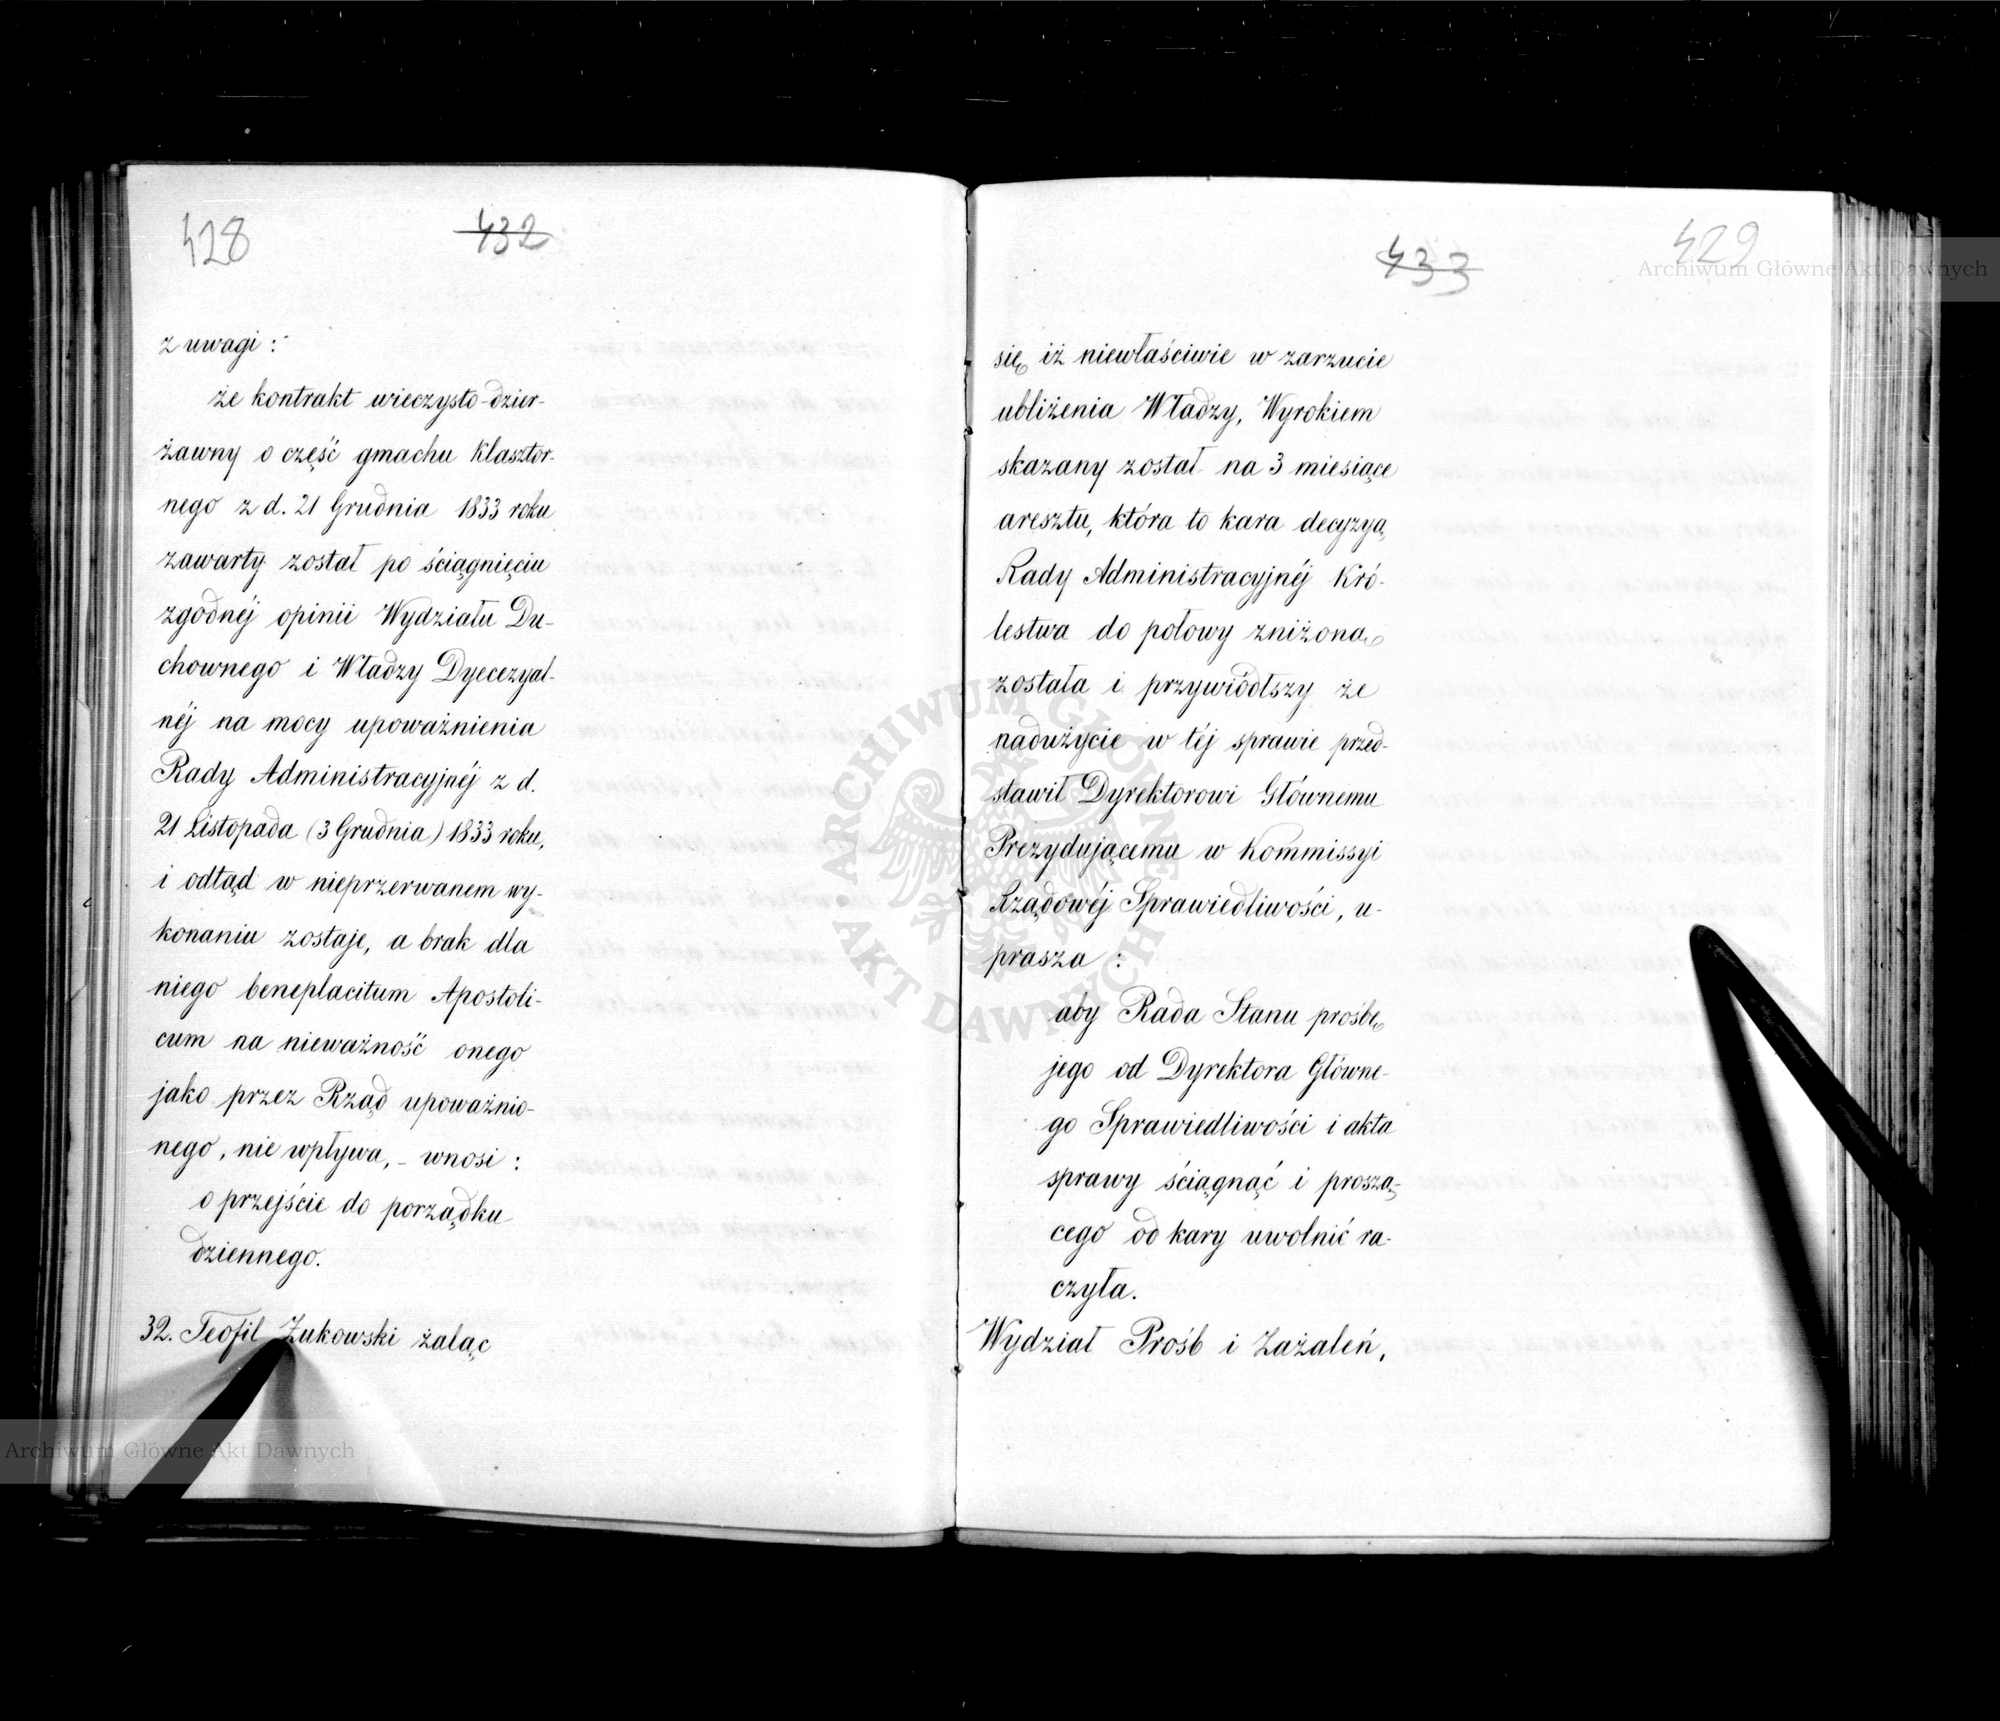 428
432
z uwagi :
że kontrakt wieczysto-dzier-
żawny o część gmachu Klasztor-
nego z d. 21 Grudnia 1833 roku
zawarty został po ściągnięciu
zgodnéj opinii Wydziału Du-
chownego i Władzy Dyecezyal-
néj na mocy upoważnienia
Rady Administracyjnéj z d.
21 Listopada (3 Grudnia) 1833 roku,
i odtąd w nieprzerwanem wy-
konaniu zostaje, a brak dla
niego beneplacitum Apostoli-
cum na nieważność onego
jako przez Rząd upoważnio-
nego, nie wpływa, - wnosi :
o przejście do porządku
dziennego.
32. Teofil Żukowski żaląc
429
433
się, iż niewłaściwie w zarzucie
ubliżenia Władzy, Wyrokiem
skazany został na 3 miesiące
aresztu, która to kara decyzyą
Rady Administracyjnéj Kró-
lestwa do połowy zniżoną
została i przywiódłszy że
nadużycie w téj sprawie przed-
stawił Dyrektorowi Głównemu
Prezydującemu w Kommissyi
Rządowéj Sprawiedliwości, u-
prasza :
aby Rada Stanu prośbę
jego od Dyrektora Główne-
go Sprawiedliwości i akta
sprawy ściągnąć i proszą-
cego od kary uwolnić ra-
czyła.
Wydział Próśb i Zażaleń,
Archiwum Główne Akt Dawnych
Archiwum Główne Akt Dawnych
ARCHIWUM GŁÓWNE AKT DAWNYCH